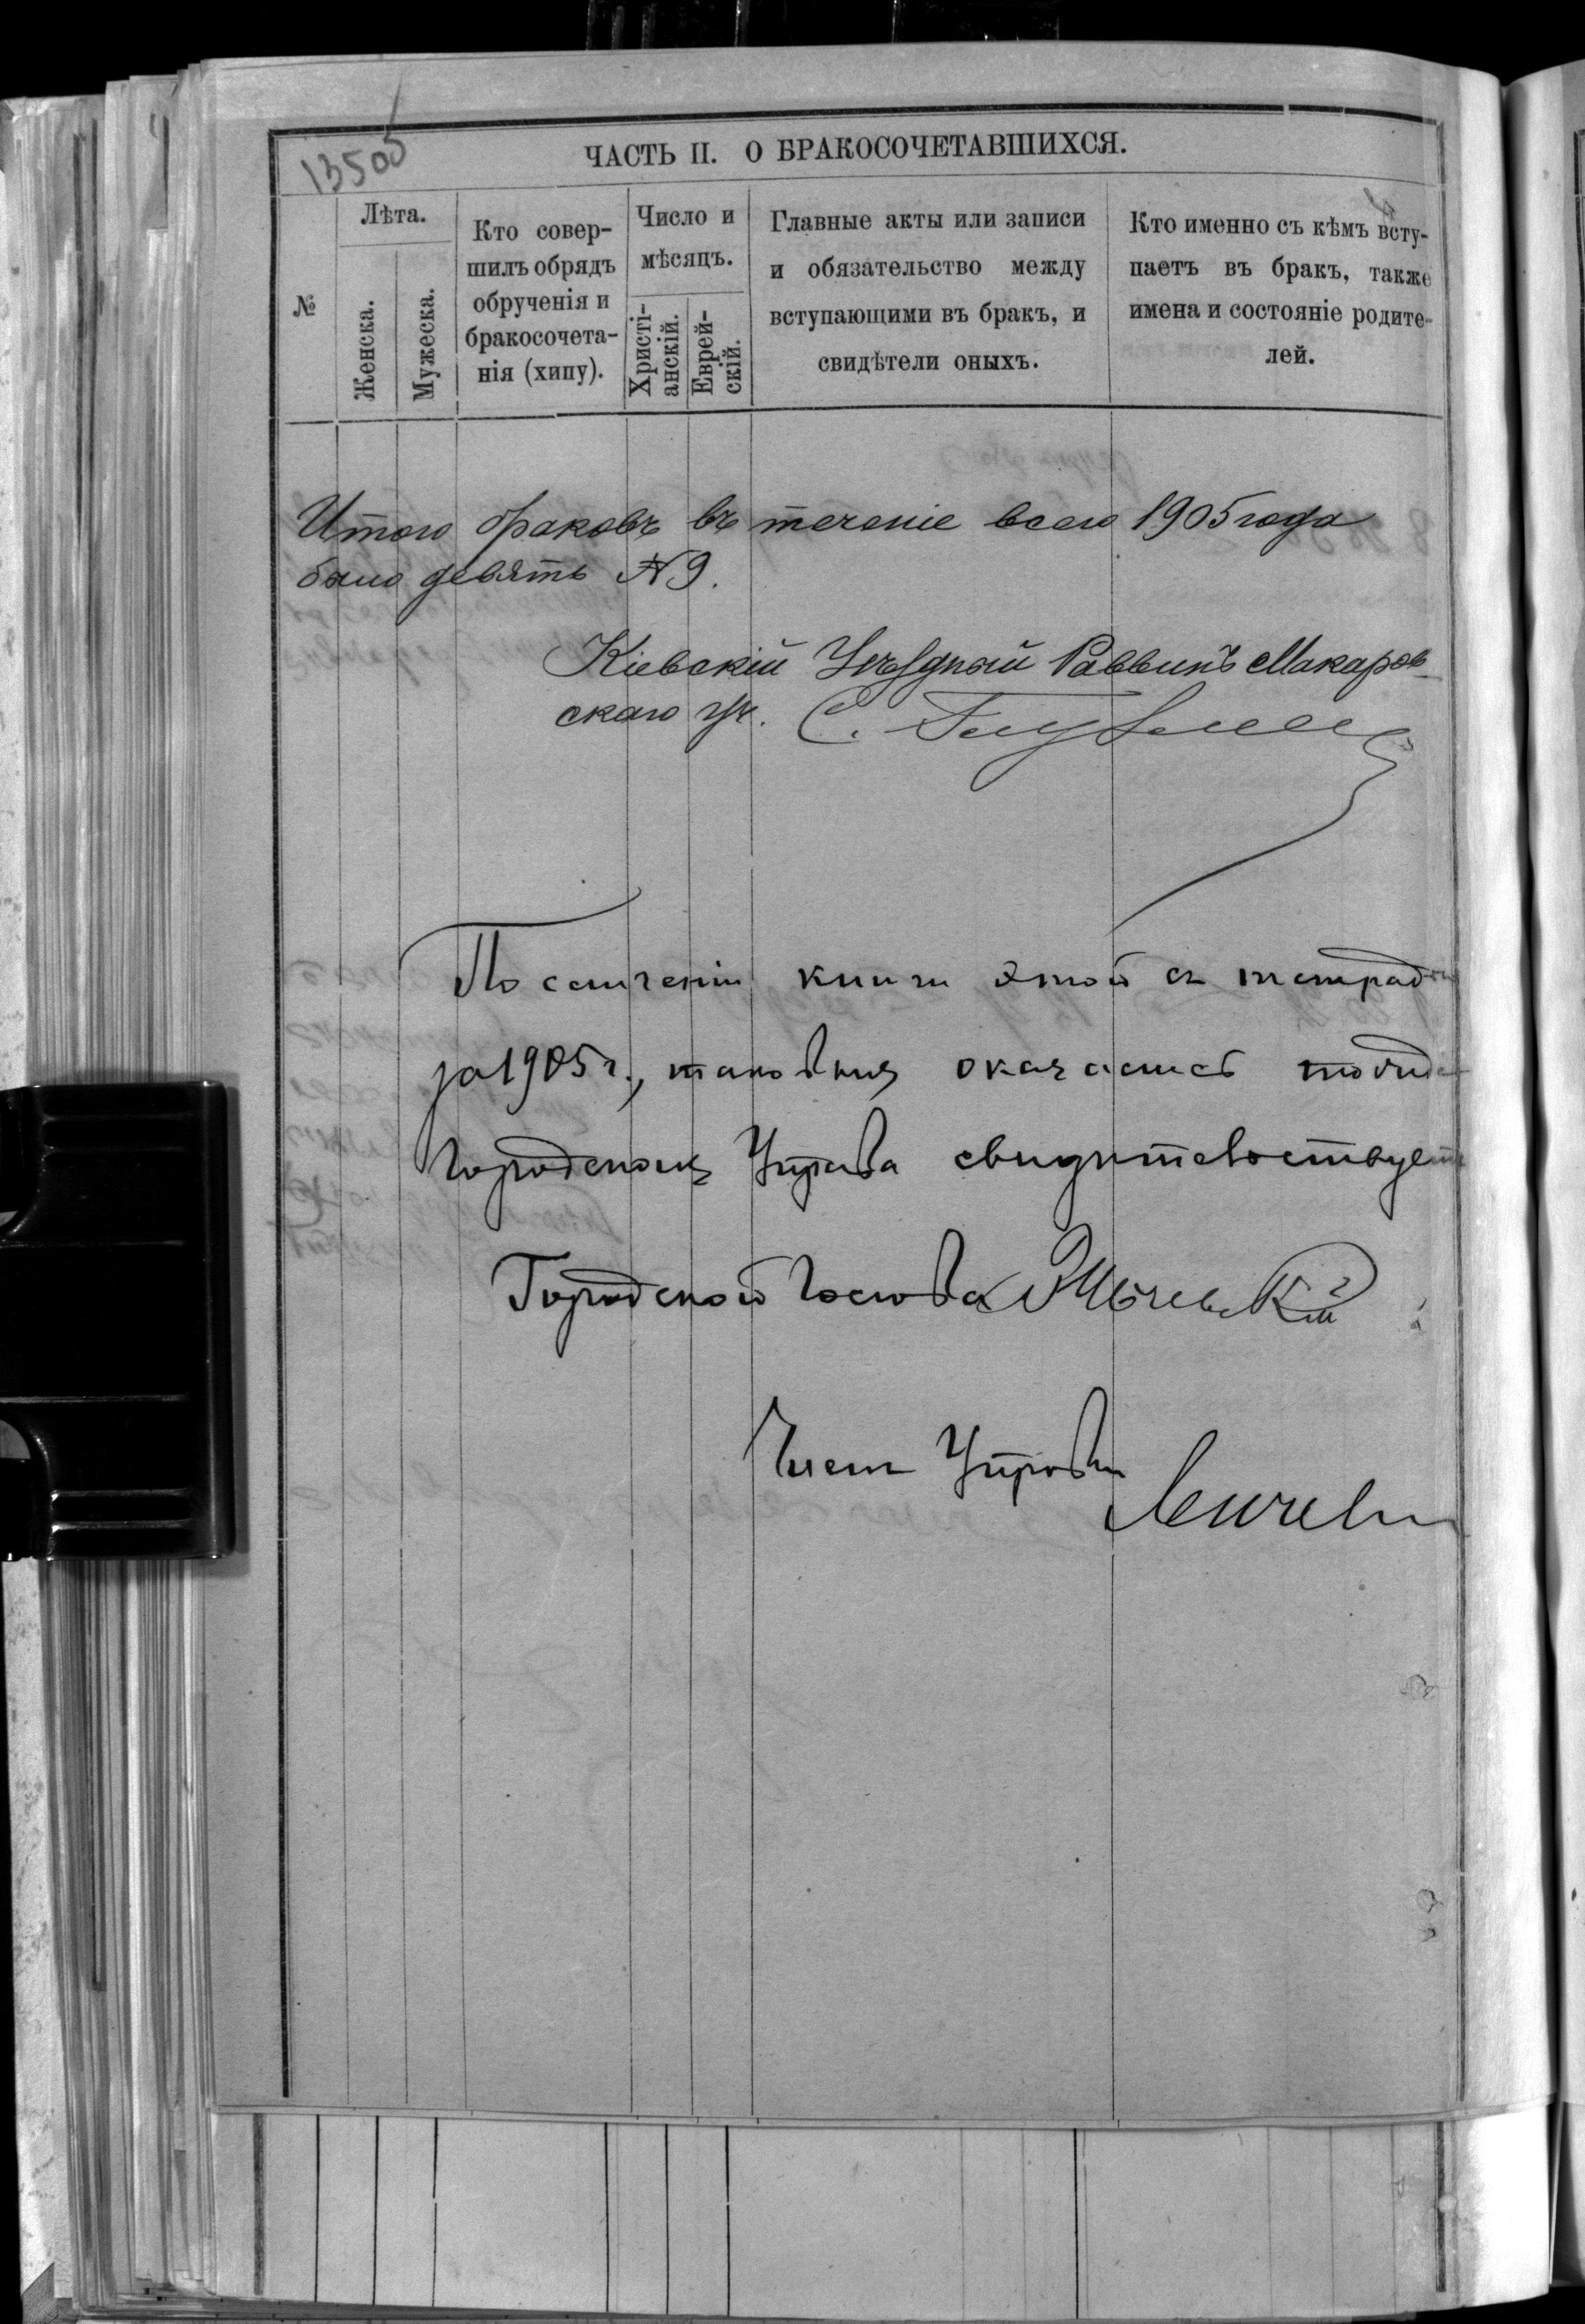 13505
ЧАСТЬ II. О БРАКОСОЧЕТАВШИХСЯ.
№
Лѣта.
Женска.
Мужеска.
Кто совер-
шилъ обрядъ
обрученія и
бракосочета-
нія (хипу).
Число и
мѣсяцъ.
Христі-
анскій.
Еврей-
скій.
Главные акты или записи
и обязательство между
вступающими въ бракъ, и
свидѣтели оныхъ.
Кто именно съ кѣмъ всту-
паетъ въ бракъ, также
имена и состояніе родите-
лей.
Итого браковъ въ теченіе всего 1905 года
было девять № 9.
Кіевскій Уѣздный Раввинъ Макаров-
скаго уч. С.
По сличеніи книги этой съ тетрадью
за 1905 г., таковыя оказались
Городская Управа свидѣтельствуетъ
Городской Голова
Членъ Управы